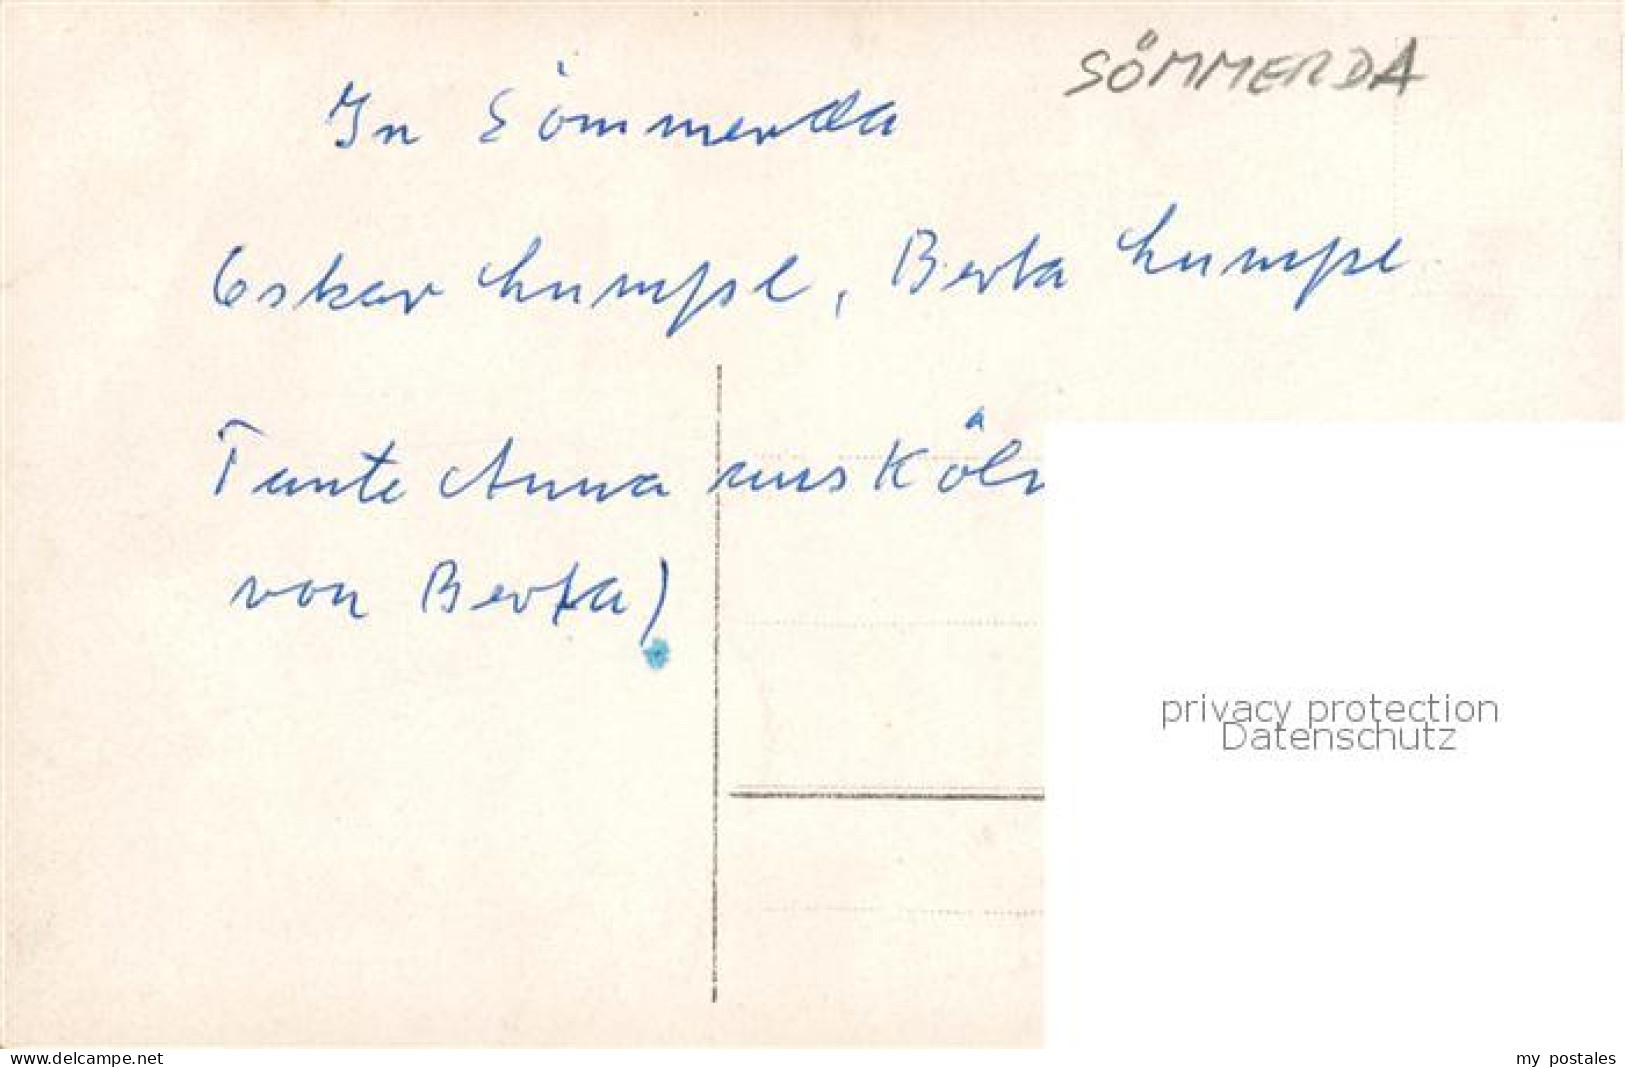 SÖMMERDA
In Sömmerda
Oskar Lumpe, Berta Lumpe
Tante Anna aus Köln
von Berta)
privacy protection
Datenschutz
www.delcampe.net
my postales